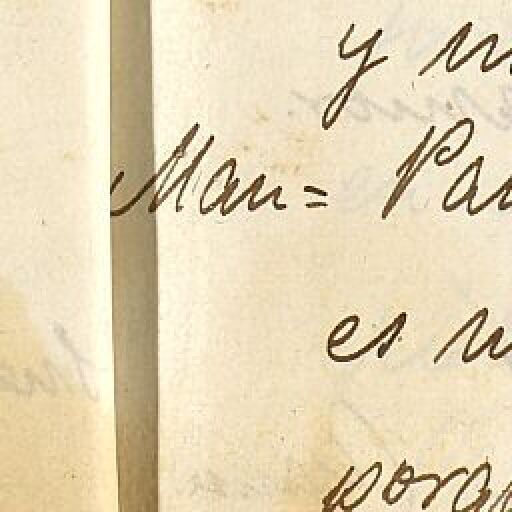 y
Man= Par
es
porq